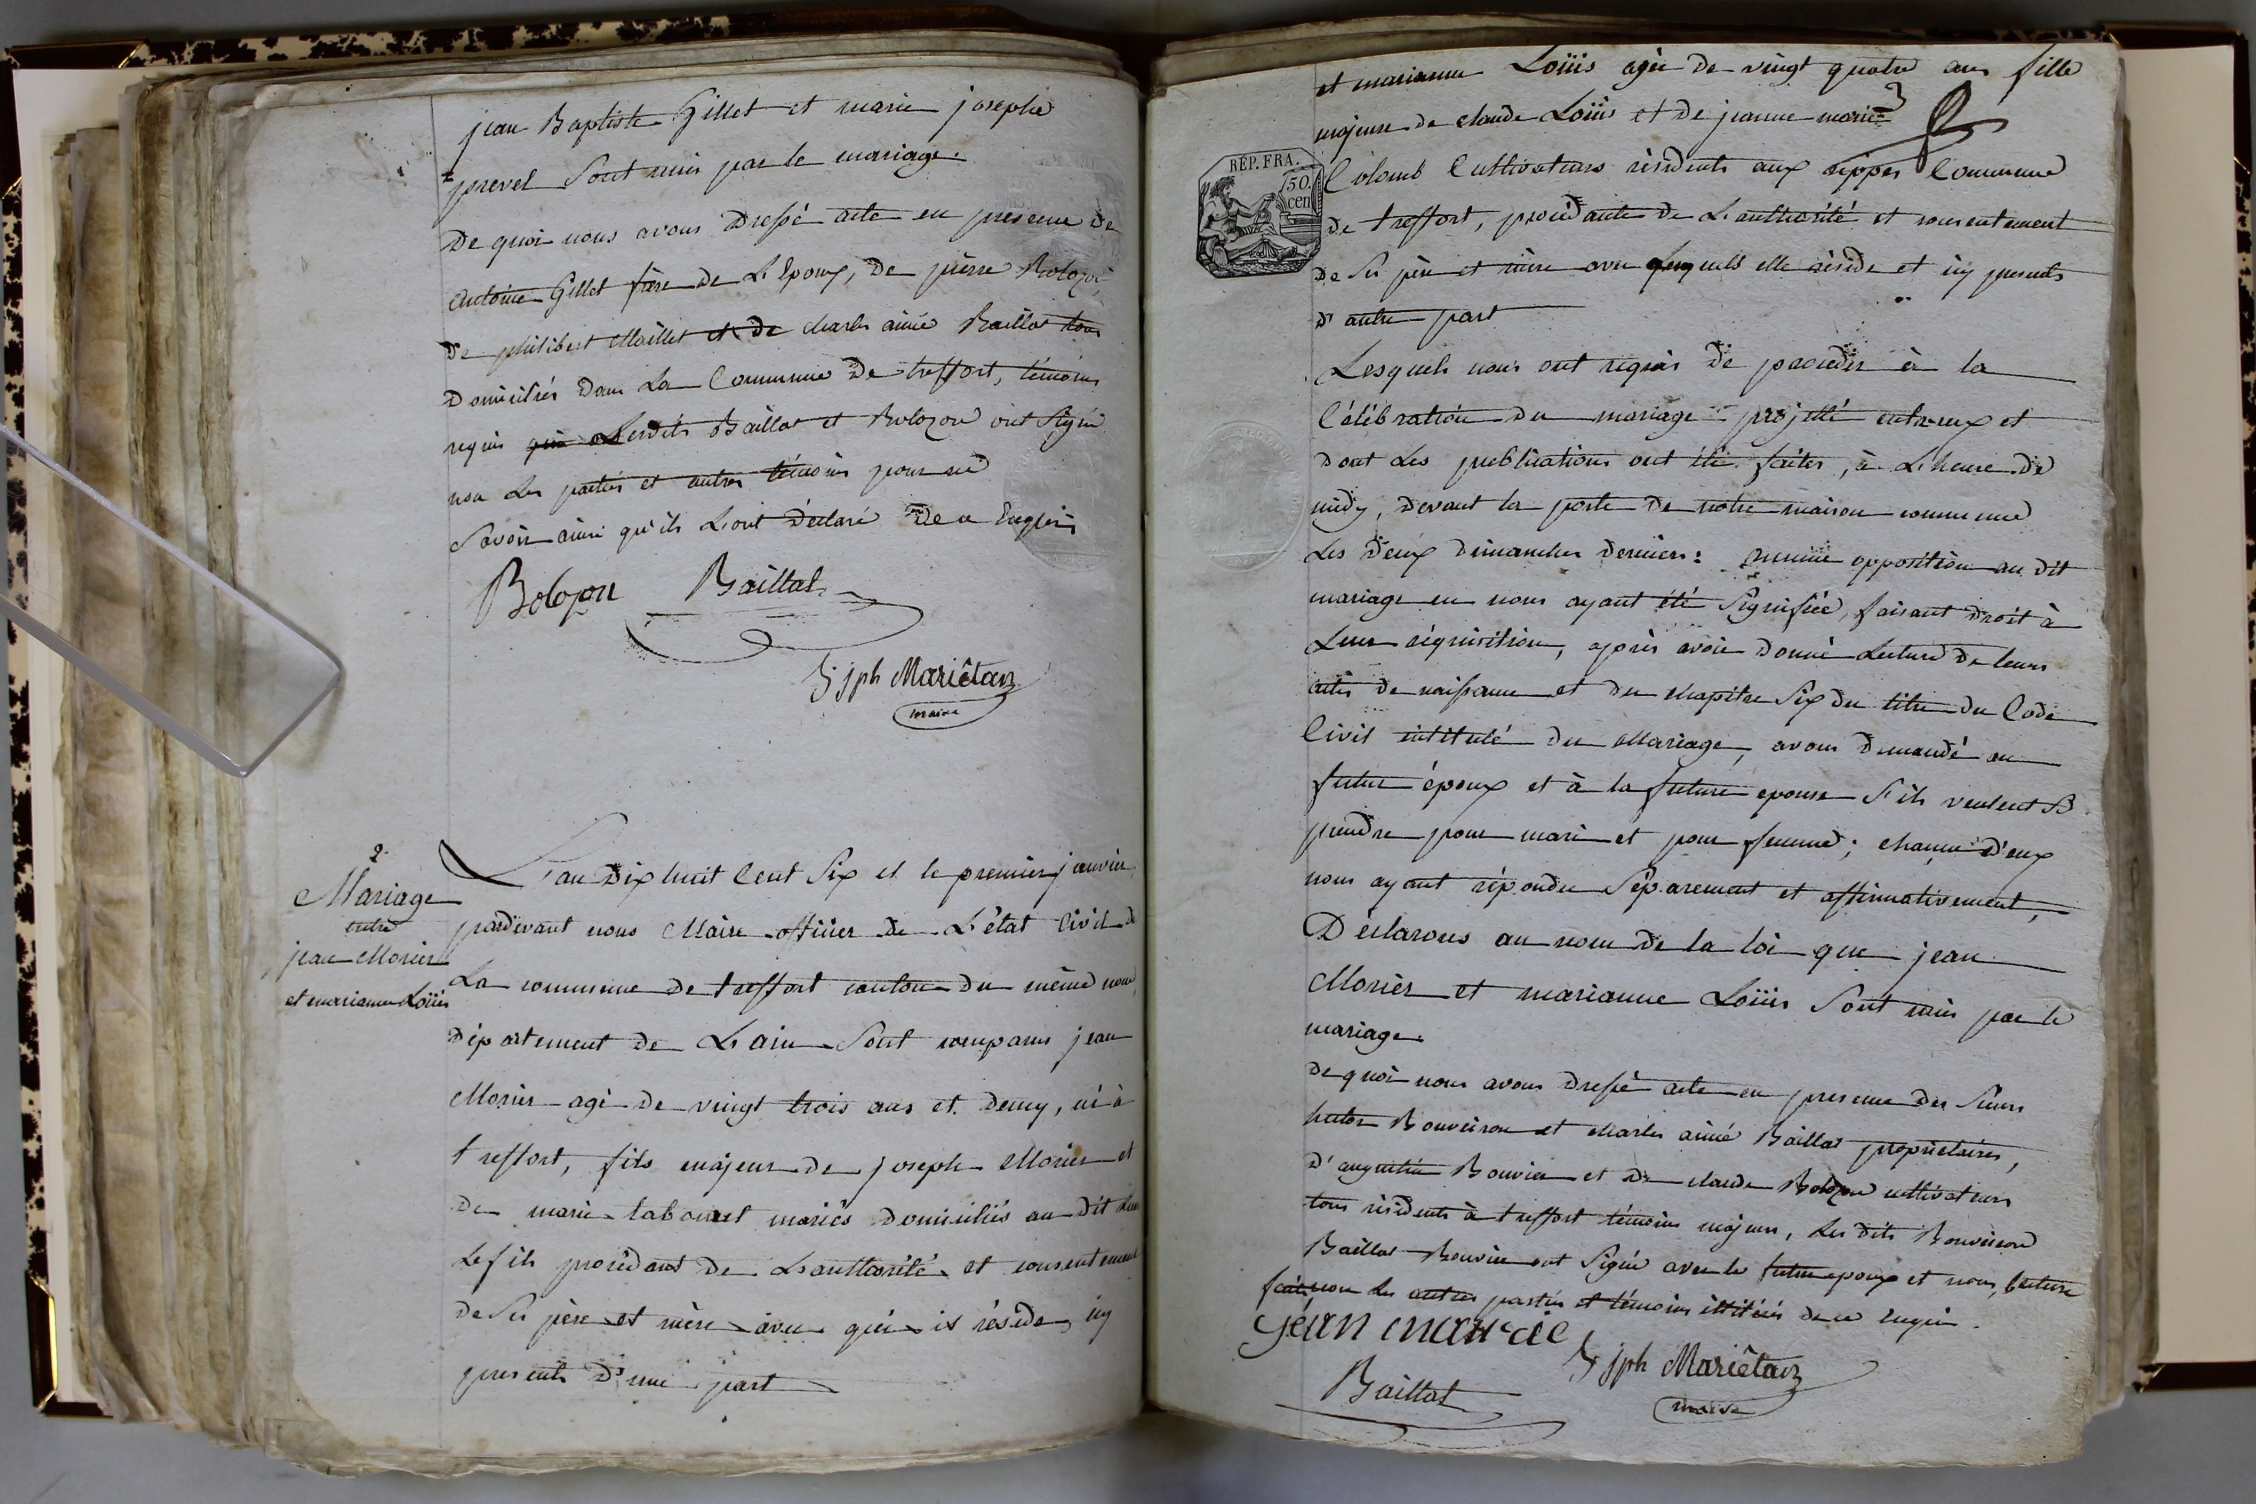 jean Baptiste Gillet et marie josephe
prevel Sont unis par le mariage.
De quoi nous avons Dressé acte en presence de
antoine Gillet frère de L'Epoux, de pierre Bolozon
de philibert Maillet et de charles aimé Baillat tous
Domiciliés dans La Commune de treffort, témoins
requis Lesdits Baillat et Bolozon ont Signé
non Les parties et autres témoins pour ne
Savoir ainsi qu'ils L'ont déclaré de ce Enquis
Bolozon Baillat
jph Mariêtan
maire
2.
Mariage
entre
jean Morier
et marianne Loüis
L'an Dix huit Cent Six et le premier janvier,
pardevant nous Maire officier de L'état Civil de
La commune de treffort canton du même nom,
Département de L'ain Sont comparus jean
Morier agé de vingt trois ans et demy, né à
treffort, fils majeur de joseph Morier et
de marie labouret mariés domiciliés au dit lieu
Le fils procédant de L'authorité et consentement
de Ses père et mère avec qui il réside, icy
presents D'une part
et marianne Loüis agée de vingt quatre ans fille
majeure de claude Loüis et De jeanne marie
Colomb Cultivateurs résidents aux rippes Commune
RÉP. FRA.
50
cen
de treffort, procédante de L'authorité et consentement
de Ses père et mère avec lesquels elle réside et icy presents
d'autre part
Lesquels nous ont requis de proceder à la
Célébration du mariage projetté entr-eux et
dont Les publications ont été faites, à L'heure de
midy, devant la porte de notre maison commune
Les deux dimanches derniers: aucune opposition au dit
mariage ne nous ayant été Signifiée, faisant droit à
Leur réquisition, après avoir donné Lecture de leurs
actes de naissance et du chapitre Six du titre du Code
Civil intitulé du Mariage, avons demandé au
futur époux et à la future epouse S'ils veulent Se
prendre pour mari et pour femme; chacun d'eux
nous ayant répondu Séparement et affirmativement,
Déclarons au nom de la loi que jean
Morier et marianne Loüis Sont unis par le
mariage.
de quoi nous avons dressé acte en presence des Sieurs
hector Bouveiron et charles aimé Baillat proprietaires,
d'augustin Bouvier et de claude Bolozon cultivateurs
tous résidents à treffort témoins majeurs, Les dits Bouveiron
Baillat Bouvier ont Signé avec le futur epoux et nous, lecture
faite, non les autres parties et témoins illitérés de ce Enquis.
jéan mauriè
jph Mariêtan
maire
Baillat